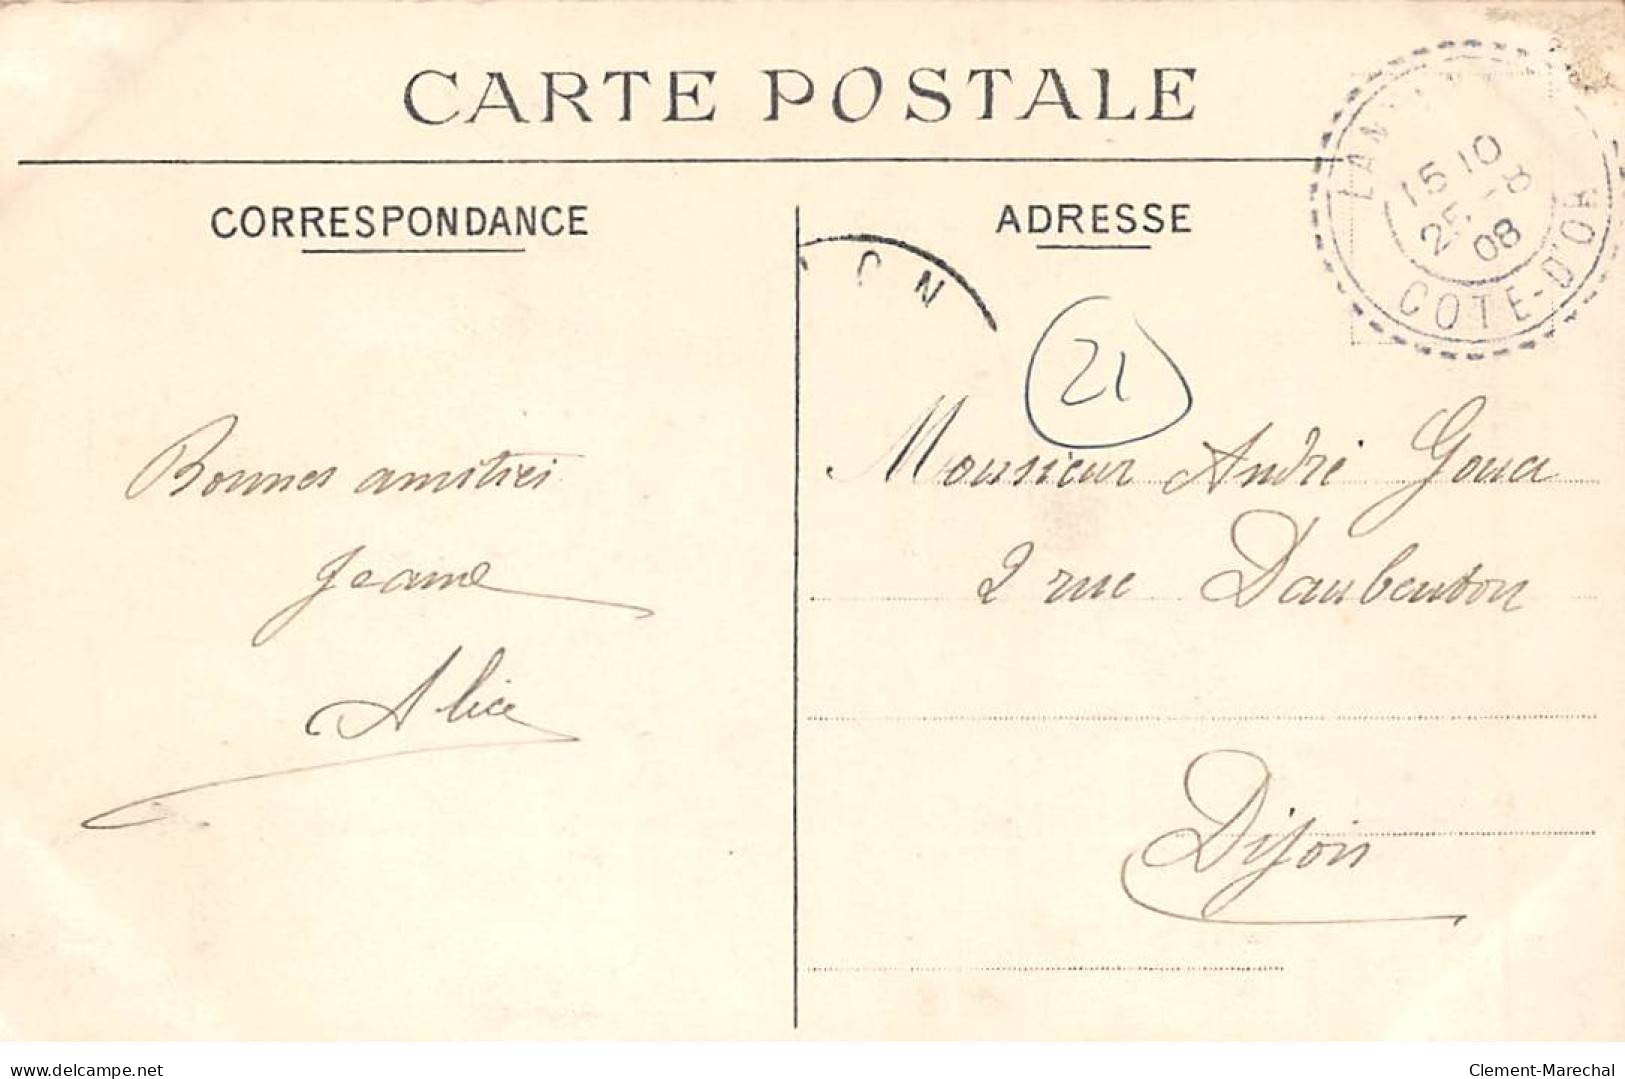 CARTE POSTALE
CORRESPONDANCE
ADRESSE
15 10
25 - 8
08
COTE-D'OR
ON
21
Bonnes amitiés
Jeanne
Alice
Monsieur André
2 rue Daubenton
Dijon
www.delcampe.net
Clement-Marechal